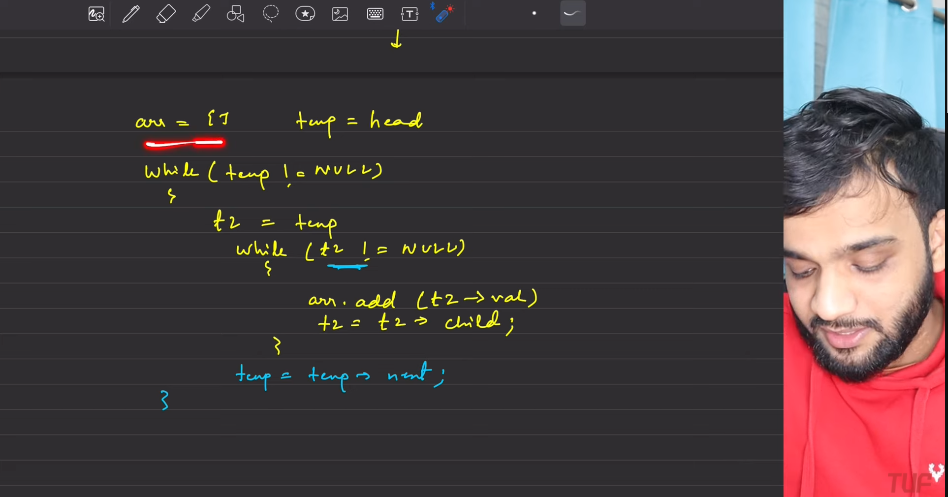 arr = []    temp = head
while (temp != NULL)
{
t2 = temp
while (t2 != NULL)
{
arr.add (t2 → val)
t2 = t2 → child;
}
temp = temp → next;
}
TUF